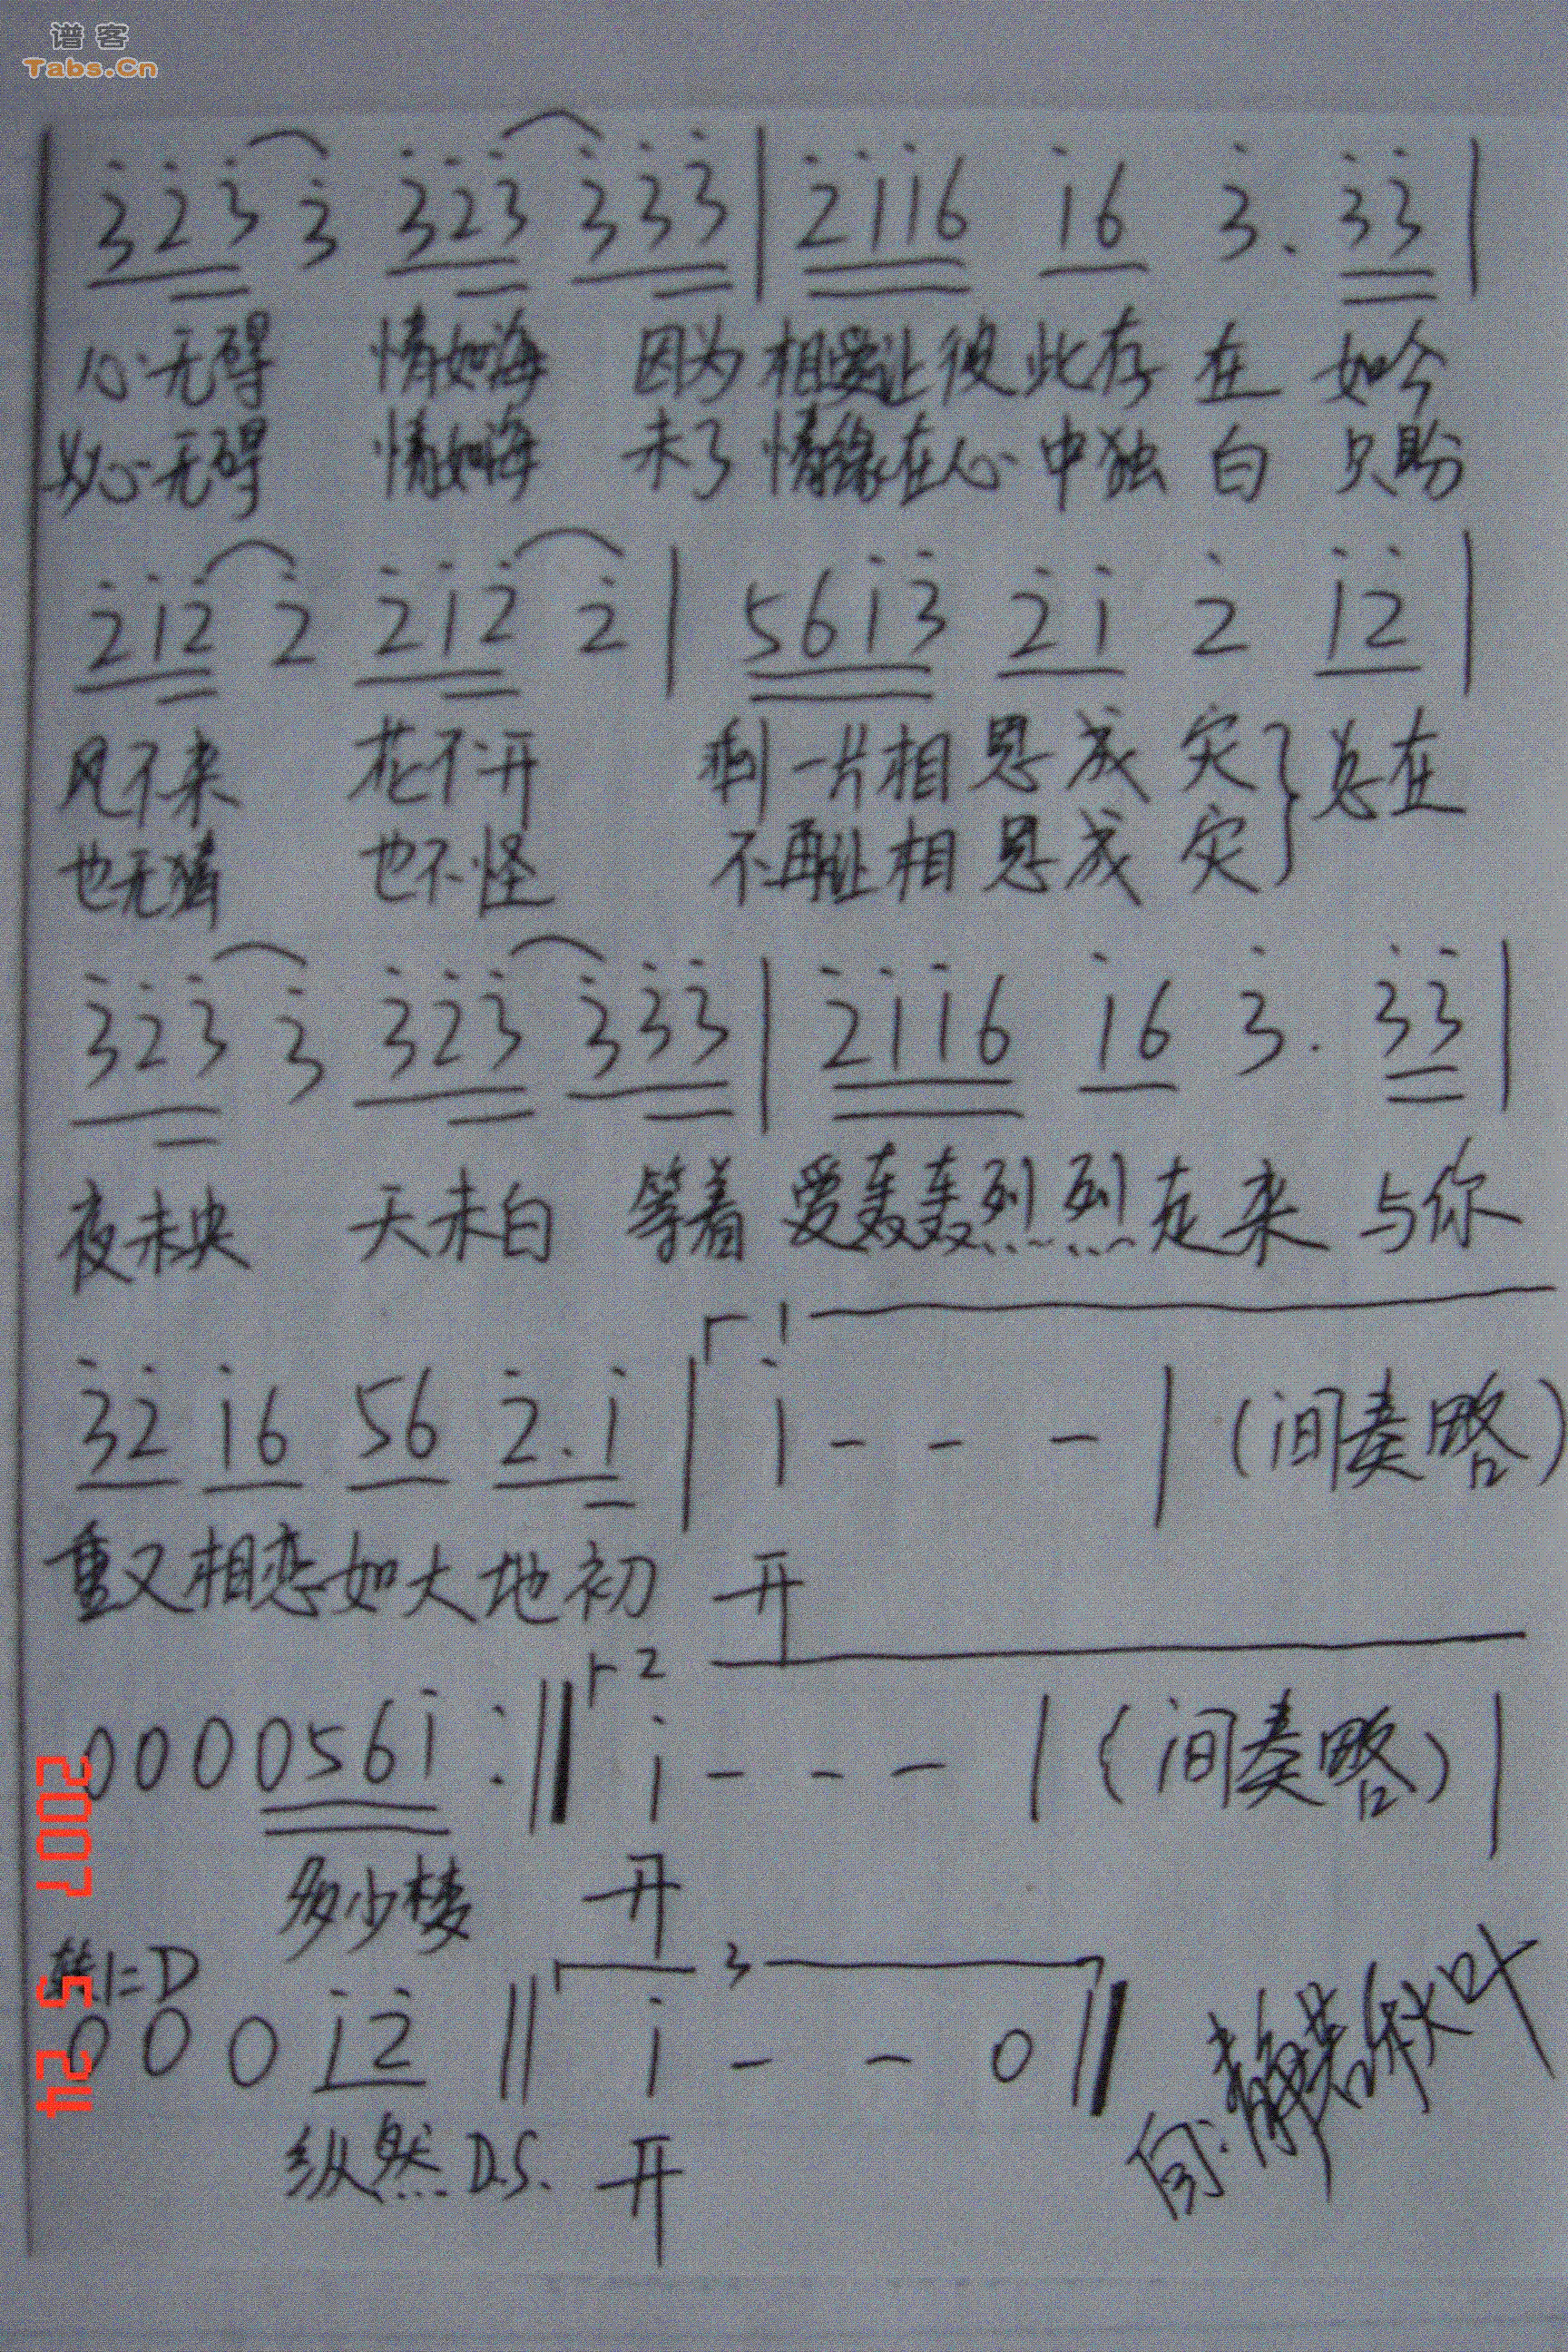 谱客
Tabs.Cn
3̇2̇3̇ 3̇ 3̇2̇3̇ 3̇3̇3̇ | 2̇1̇1̇6 1̇6 3̇. 3̇3̇ |
心无碍 情如海 因为 相爱让彼此存在 如今
心无碍 情如海 未了 情缘在心中独白 只盼
2̇1̇2̇ 2̇ 2̇1̇2̇ 2̇ | 561̇3̇ 2̇1̇ 2̇ 1̇2̇ |
风不来 花不开 剩一片相思成灾 } 总在
也无猜 也不怪 不再让相思成灾
3̇2̇3̇ 3̇ 3̇2̇3̇ 3̇3̇3̇ | 2̇1̇1̇6 1̇6 3̇. 3̇3̇ |
夜未央 天未白 等着 爱轰轰烈烈走来 与你
1
3̇2̇ 1̇6 56 2̇.1̇ | 1̇ - - - | (间奏略)
重又相恋如大地初 开
2
0 0 0 0561̇ :‖ 1̇ - - - | (间奏略) |
多少楼 开
转1=D 3
0 0 0 1̇2̇ ‖ 1̇ - - 0 ‖
纵然 D.S. 开
静若秋叶
2007 5 24